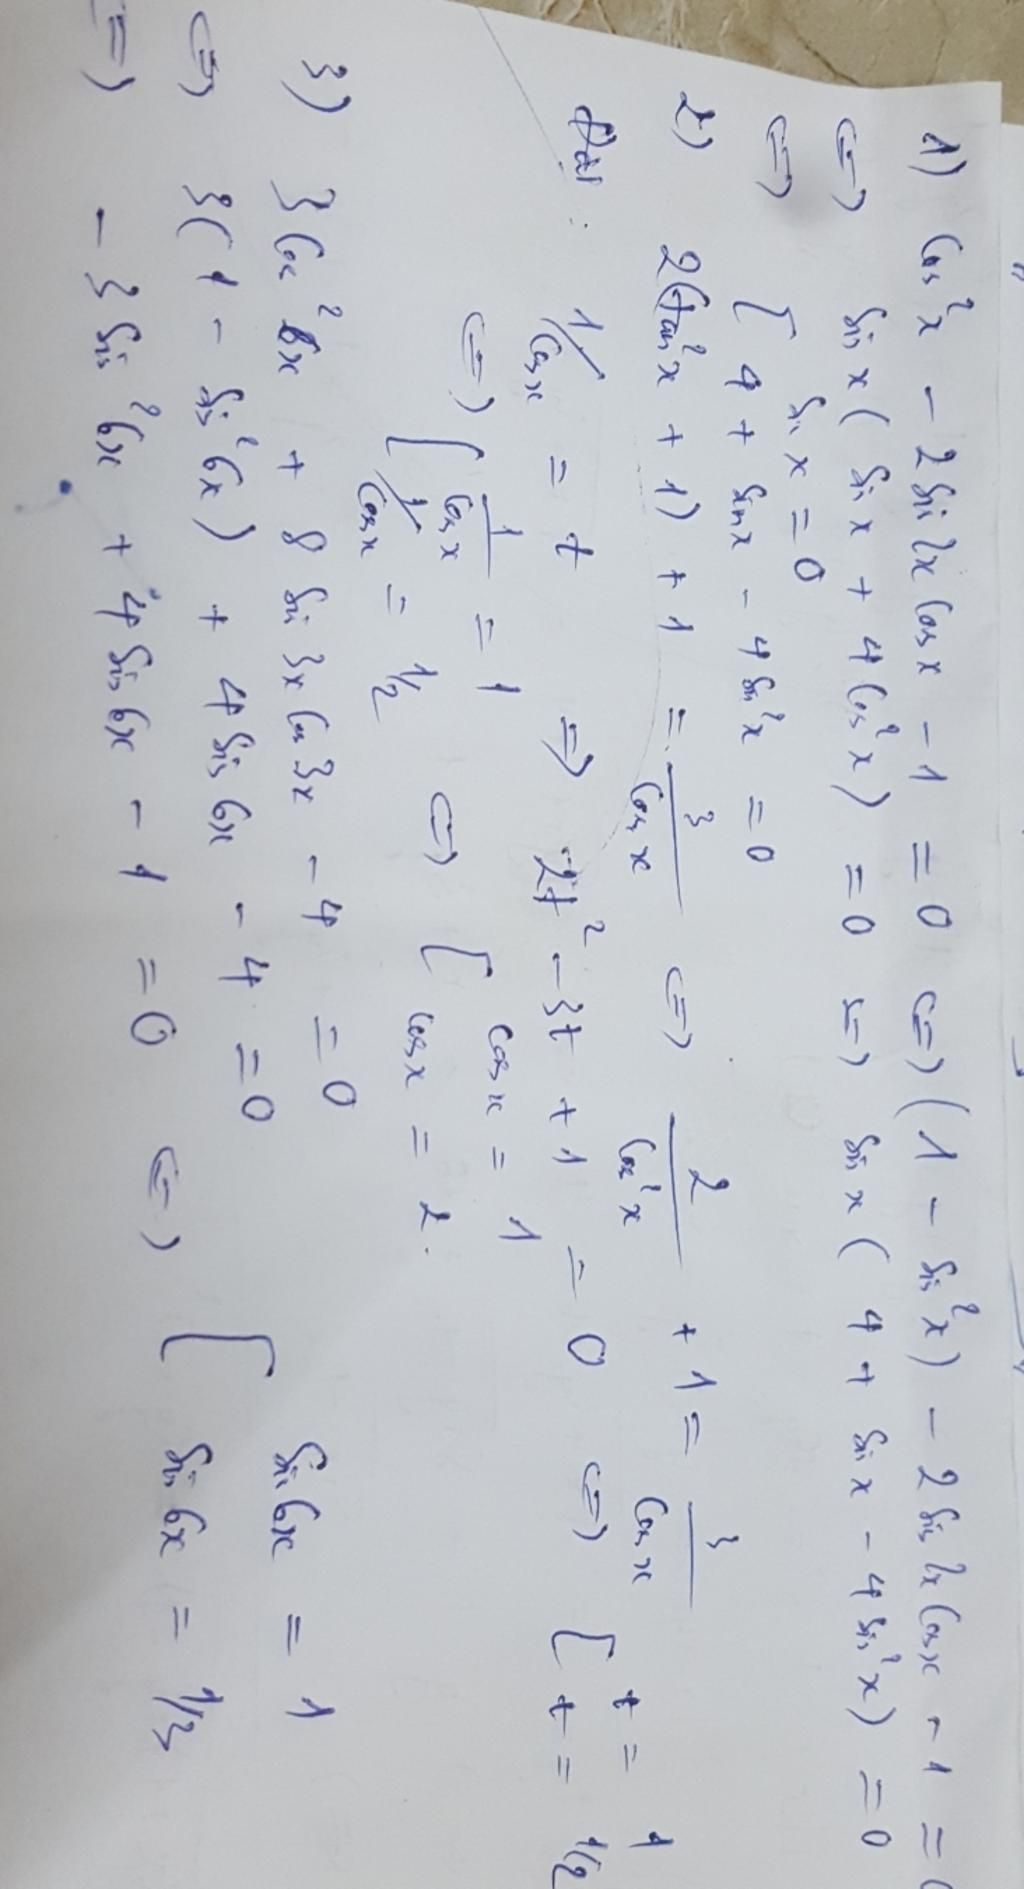 1) cos²x - 2sin2x cosx - 1 = 0 <=> (1 - sin²x) - 2sin2x cosx - 1 =
<=> sinx(sinx + 4cos²x) = 0 <=> sinx(4 + sinx - 4sin²x) = 0
<=> [ sinx = 0
4 + sinx - 4sin²x = 0
2) 2(tan²x + 1) + 1 = 3/cosx <=> 2/cos²x + 1 = 3/cosx
Đặt : 1/cosx = t => 2t² - 3t + 1 = 0 <=> [ t = 1
t = 1/2
<=> [ 1/cosx = 1
1/cosx = 1/2 <=> [ cosx = 1
cosx = 2.
3) 3cos²6x + 8sin3x cos3x - 4 = 0
<=> 3(1 - sin²6x) + 4sin6x - 4 = 0
<=> - 3sin²6x + 4sin6x - 1 = 0 <=> [ sin6x = 1
sin6x = 1/3